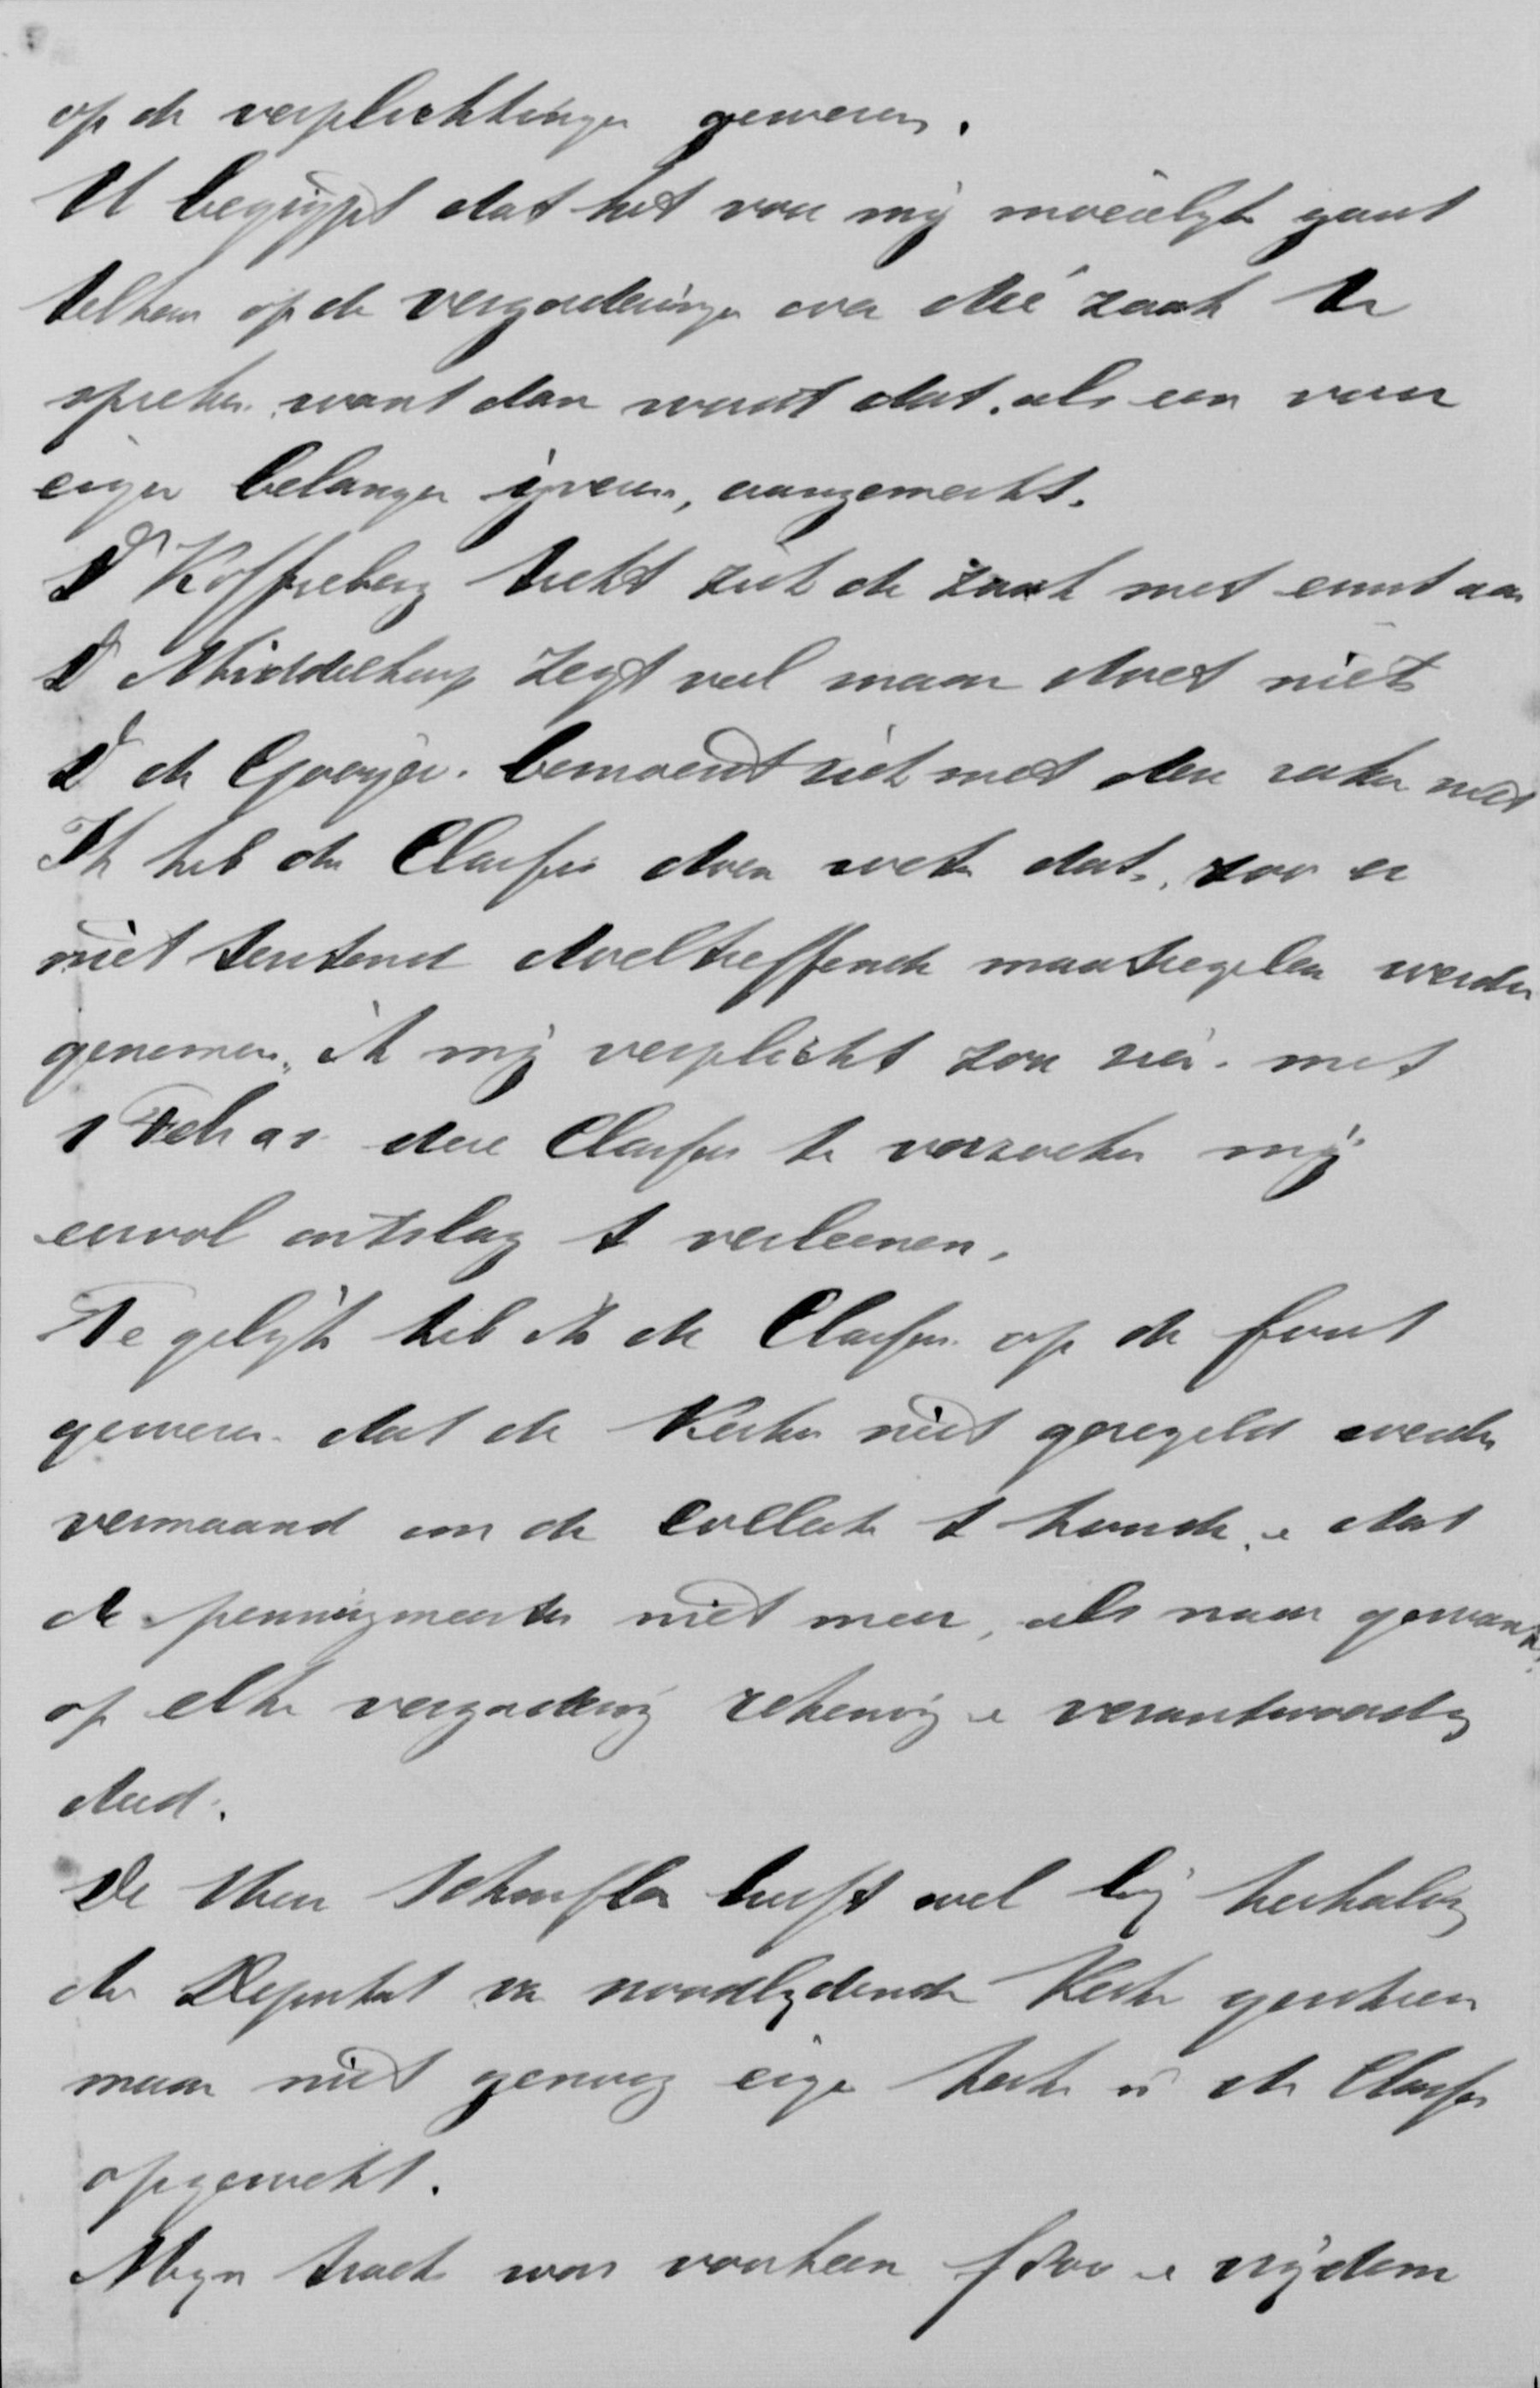 op de verplichtingen gewezen.
U begrijpt dat het voor mij moeielijk gaat
telkens op de vergaderingen over die zaak te
spreken. want dan wordt dat. als een voor
eigen belangen ijveren, aangemerkt.
Ds Koffyberg trekt zich de zaak met ernst aan
Ds Middelkoop zegt veel maar doet niets
Ds de Gooyer. bemoeit zich met den zaken niet
Ik heb de Classis doen weten dat, zoo er
niet terstond doeltreffende maatregelen werden
genomen, ik mij verplicht zou zien. met
1 Febr as. deze Classis te verzoeken mij
eervol ontslag te verleenen.
Te gelijk heb ik de Classis. op de fout
gewezen. dat de Kerken niet geregeld werden
vermaand om de collecte te houden. en dat
de penningmeester niet meer, als naar gewoonte,
op elke vergadering rekening en verantwoording
deed.
De Heer heeft wel bij herhaling
de Deputat v. noodlydende Kerken geschreven
maar niet genoeg eigen kerken in de Classis
opgewekt.
Myn tract. was voorheen en vrydom